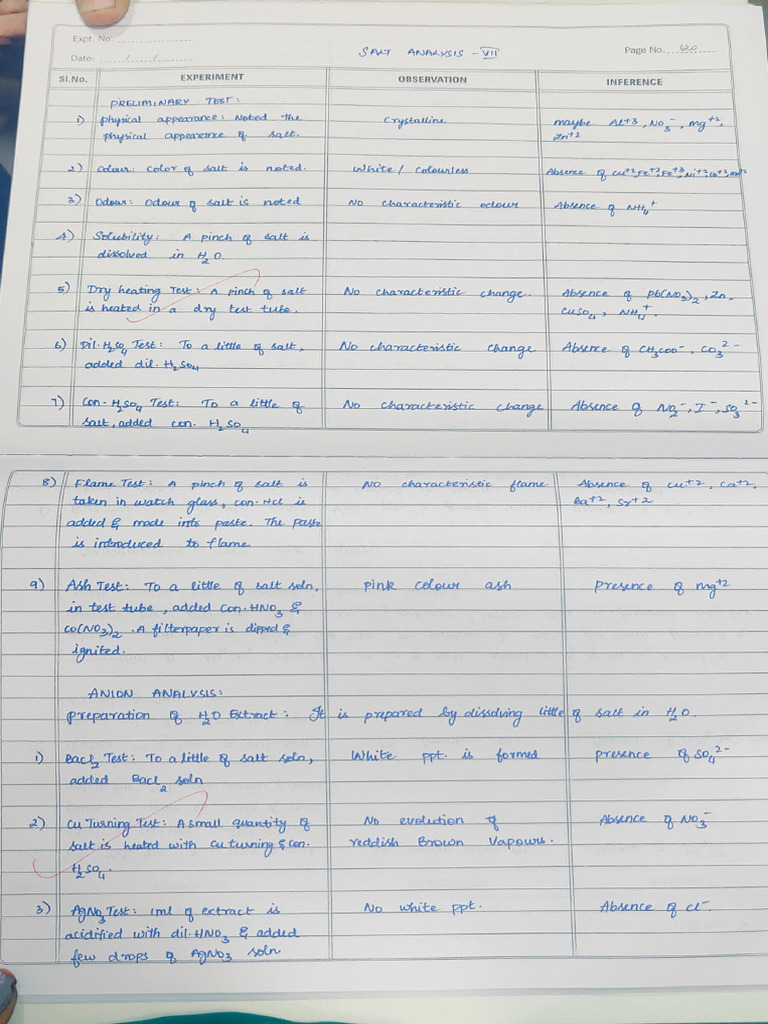 Expt. No.
SALT ANALYSIS - VII
Date:
Page No.
Sl.No. EXPERIMENT OBSERVATION INFERENCE
PRELIMINARY TEST:
1) Physical appearance: Noted the Crystalline maybe Al+3, NO3-, Mg+2,
physical appearance of salt. Zn+2
2) Colour: color of salt is noted. White/ Colourless Absence of Cu+2, Fe+2, Fe+3, Ni+2, Co+2, Mn+2
3) Odour: Odour of salt is noted No characteristic odour Absence of NH4+
4) Solubility: A pinch of salt is
dissolved in H2O.
5) Dry heating Test: A pinch of salt No characteristic change. Absence of Pb(NO3)2, Zn,
is heated in a dry test tube. CuSO4, NH4+.
6) Dil. H2SO4 Test: To a little of salt, No characteristic change Absence of CH3COO-, CO3 2-
added dil. H2SO4
7) Con. H2SO4 Test: To a little of No characteristic change Absence of NO2-, I-, SO3 2-
salt, added con. H2SO4
8) Flame Test: A pinch of salt is No characteristic flame Absence of Cu+2, Ca+2,
taken in watch glass, con. HCl is Ba+2, Sr+2
added & made into paste. The paste
is introduced to flame
9) Ash Test: To a little of salt soln, pink colour ash Presence of Mg+2
in test tube, added con. HNO3 &
CO(NO3)2. A filterpaper is dipped &
ignited.
ANION ANALYSIS:
Preparation of H2O Extract: It is prepared by dissolving little of salt in H2O.
1) BaCl2 Test: To a little of salt soln, White ppt. is formed presence of SO4 2-
added BaCl2 soln
2) Cu Turning Test: A small quantity of No evolution of Absence of NO3-
salt is heated with Cu turning & con. reddish Brown Vapours.
H2SO4.
3) AgNO3 Test: 1ml of extract is No white ppt. Absence of Cl-.
acidified with dil. HNO3 & added
few drops of AgNO3 soln